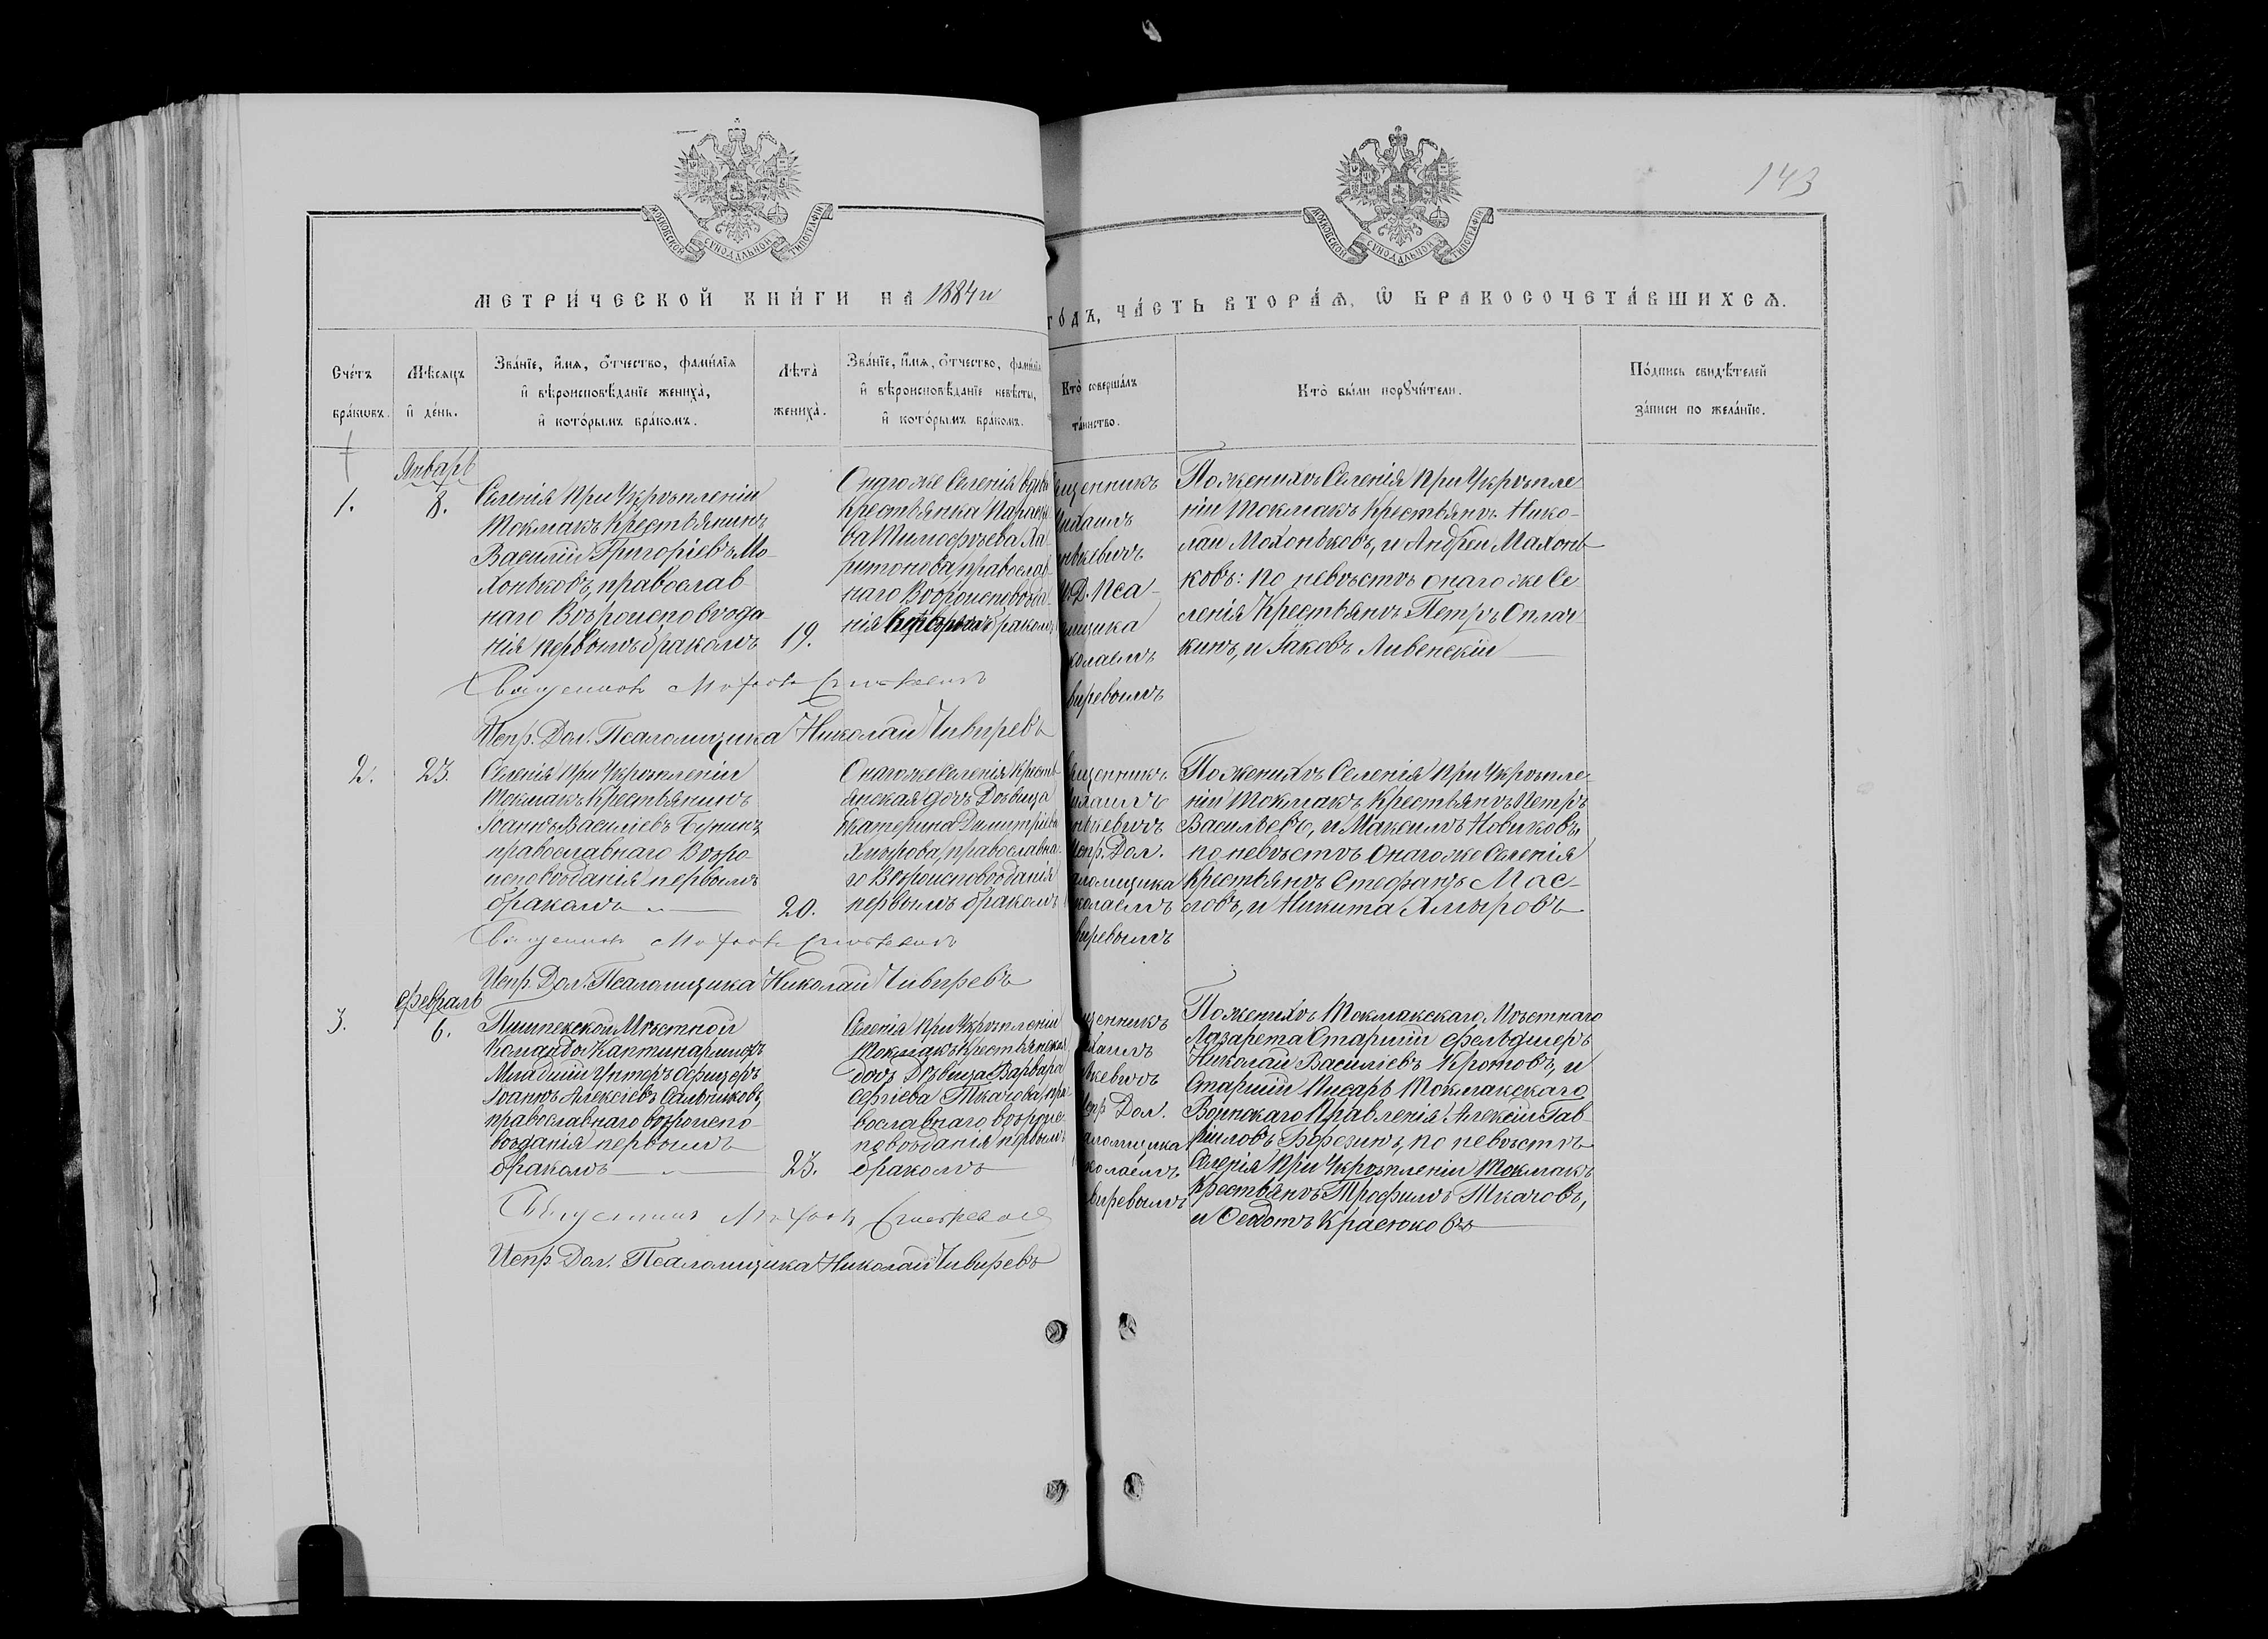 143
МОСКОВСКОЙ СѴНОДАЛЬНОЙ ТИПОГРАФІИ
МОСКОВСКОЙ СѴНОДАЛЬНОЙ ТИПОГРАФІИ
МЕТРИ́ЧЕСКОЙ КНИ́ГИ НА 1884 й
ГО́ДЪ, ЧА́СТЬ ВТОРА́Ѧ, Ѽ БРАКОСОЧЕТА́ВШИХСѦ.
Сче́тъ
бра́кѡвъ.
Мѣ́сяцъ
и҆ де́нь.
Зва́нїе, и҆́мѧ, о҆́тчество, фами́лїѧ
и҆ вѣроисповѣ́данїе жениха̀,
и҆ кото́рымъ бра́комъ.
Лѣта̀
жениха̀.
Зва́нїе, и҆́мѧ, о҆́тчество, фами́лїѧ
и҆ вѣроисповѣ́данїе невѣ́сты,
и҆ кото́рымъ бра́комъ.
Кто̀ соверша́лъ
та́инство.
Кто̀ бы́ли порꙋчи́тели.
По́дпись свидѣ́телей
за́писи по жела́нїю.
Январь
1.
8.
Селенія При Укрѣпленіи
Токмакъ Крестьянинъ
Василій Григоріевъ Мо-
хоньковъ, православ
наго Вѣроисповѣда
нія первымъ бракомъ
19.
Онагоже Селенія вдова
Крестьянка Параске
ва Тимофѣева Ха
ритонова, православ-
наго Вѣроисповѣда-
нія вторымъ бракомъ
щенникъ
Михаилъ
нькевичъ
И.Д. Пса-
мщика
колаемъ
виревымъ
По женихѣ Селенія При Укрѣпле
ніи Токмакъ Крестьянѣ Нико-
лай Мохоньковъ, и Андрей Махонь
ковъ: по невѣстѣ онагоже Се-
ленія Крестьянѣ Петръ Оплач
кинъ, и Іаковъ Ливенскій
Священникъ
Испр. Дол. Псаломщика Николай Чивиревъ
2.
23.
Селенія При Укрѣпленіи
Токмакъ Крестьянинъ
Іоаннъ Василіевъ Бунинъ
православнаго Вѣро-
исповѣданія первымъ
бракомъ
20.
Онагоже Селенія Кресть
янская дочь Дѣвица
Екатерина Димитріева
Хмырова, православна-
го Вѣроисповѣданія
первымъ бракомъ
щенникъ
хаилъ
нькевичъ
Испр. Дол.
аломщика
колаемъ
виревымъ
По женихѣ Селенія При Укрѣпле-
ніи Токмакъ, Крестьянѣ Петръ
Васильевъ, и Максимъ Новиковъ,
по невѣстѣ Онагоже Селенія
Крестьянѣ Стефанъ Мас-
ловъ, и Никита Хмыровъ
Священникъ
Испр. Дол. Псаломщика Николай Чивиревъ
Февраль
3.
6.
Пишпекской Мѣстной
Команды Каптинармусъ
Младшій Унтеръ Офицеръ
Іоаннъ Алексіевъ Сальниковъ,
православнаго вѣроиспо-
вѣданія первымъ
бракомъ
23.
Селенія При Укрѣпленіи
Токмакъ Крестьянская
дочь Дѣвица Варвара
Сергіева Ткачова, пра-
вославнаго вѣроис-
повѣданія первымъ
бракомъ
щенникъ
хаилъ
ькевичъ
Испр. Дол.
аломщика
колаемъ
виревымъ
По женихѣ Токмакскаго Мѣстнаго
Лазарета Старшій Фельдшеръ
Николай Василіевъ Кротовъ, и
Старшій Писарь Токмакскаго
Воинскаго Правленія Алексій Гав-
риловъ Борозинъ, по невѣстѣ
Селенія При Укрѣпленіи Токмакъ
Крестьянѣ Трофимъ Ткачовъ,
и Ѳедотъ Красюковъ
Священникъ
Испр. Дол. Псаломщика Николай Чивиревъ